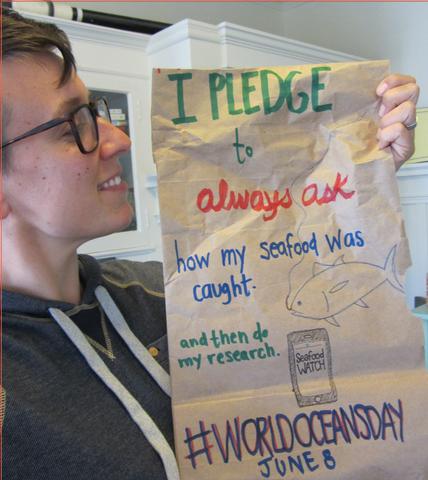 I PLEDGE
to
always ask
how my seafood was
caught.
and then do
my research.
Seafood
WATCH
#WORLDOCEANSDAY
JUNE 8